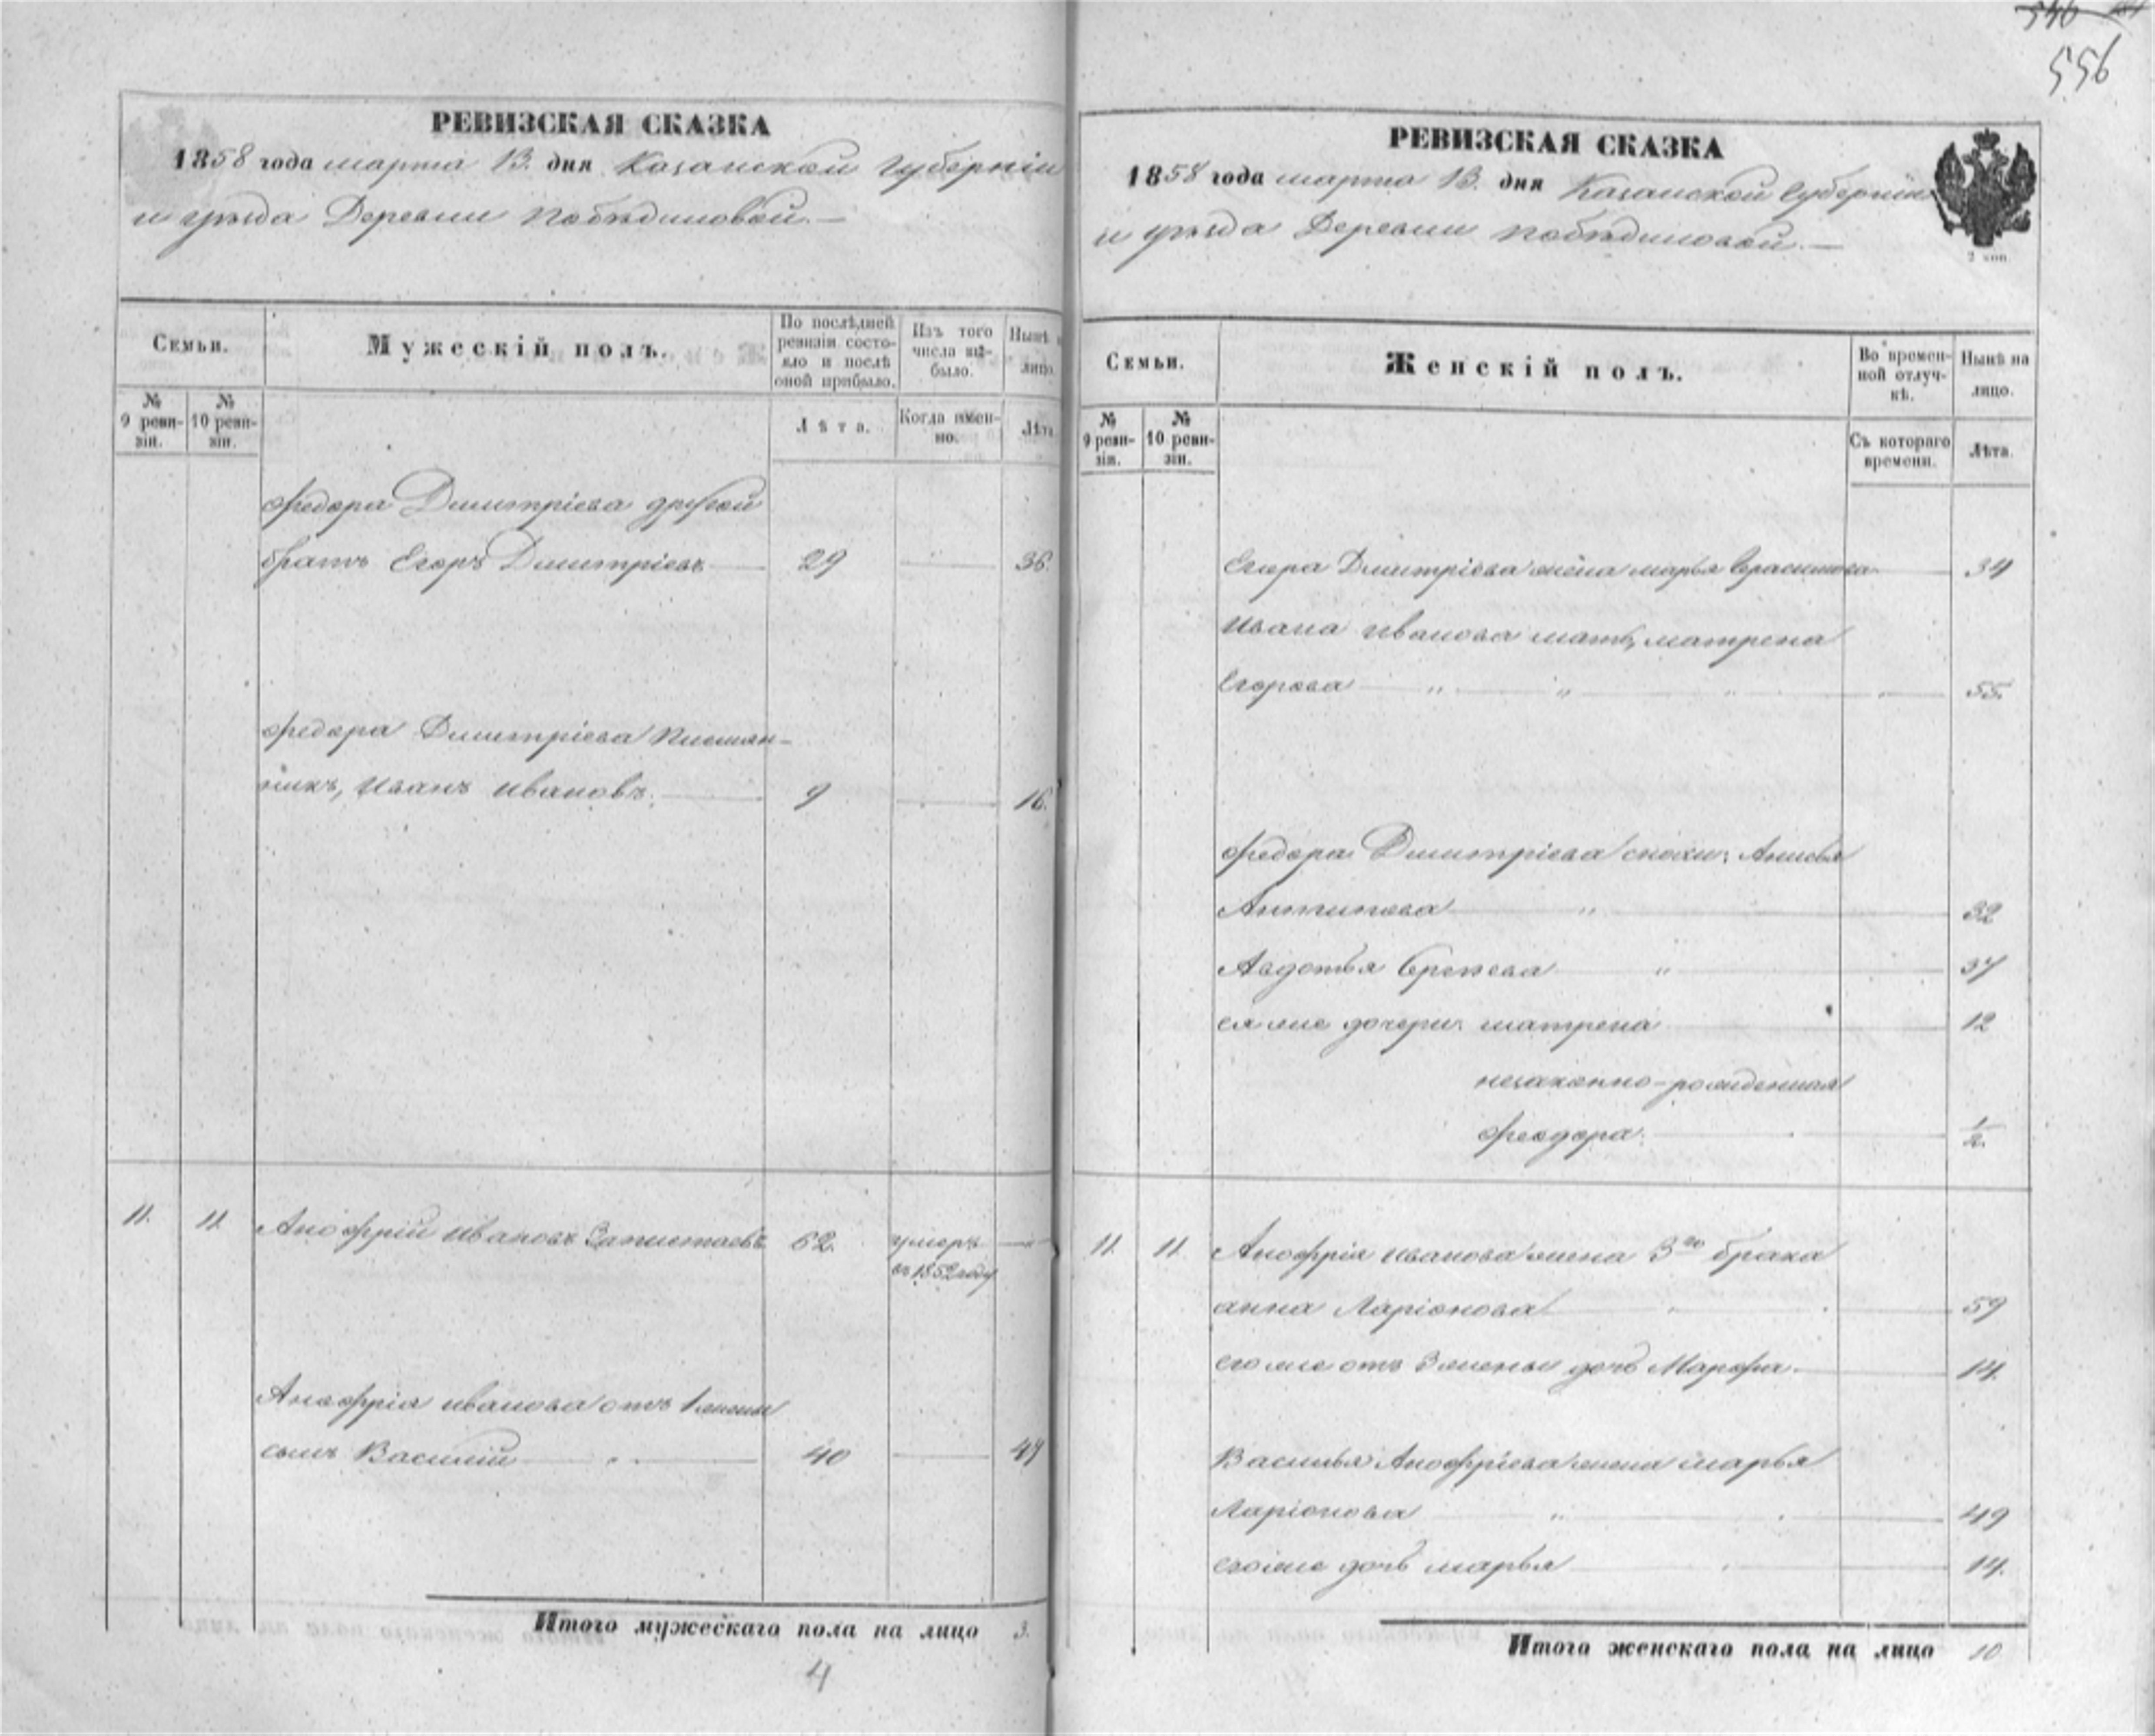 546
556
РЕВИЗСКАЯ СКАЗКА
1858 года марта 13. дня Казанской Губерніи
и уѣзда Деревни Побѣдиловой.—
Семьи.
Мужескій полъ.
По послѣдней ревизіи состояло и послѣ оной прибыло.
Изъ того числа выбыло.
Нынѣ на лицо.
№ 9 ревизіи.
№ 10 ревизіи.
Лѣта.
Когда именно.
Лѣта
Федора Димитріева другой
братъ Егоръ Димитріевъ 29 36.
Федора Димитріева племян-
никъ, Иванъ Ивановъ. 9 16.
11. 11. Анофрій Ивановъ 62. умеръ
въ 1852 году
Анофрія Иванова отъ 1 жены
сынъ Василій 40 47
Итого мужескаго пола на лицо 3.
4
РЕВИЗСКАЯ СКАЗКА
1858 года марта 13. дня Казанской Губерніи
и уѣзда Деревни Побѣдиловой.—
2 коп.
Семьи.
Женскій полъ.
Во временной отлучкѣ.
Нынѣ на лицо.
№ 9 ревизіи.
№ 10 ревизіи.
Съ котораго времени.
Лѣта.
Егора Димитріева жена Марья Герасимова 34
Ивана Иванова мать, Матрена
Егорова " " " 55.
Федора Димитріева снохи: Анисья
Антипова " 32
Авдотья Сергѣева " 37
ея же дочери: Матрена 12
незаконно-рожденная
Феодора. 1/2.
11. 11. Анофрія Иванова жена 3го брака
Анна Ларіонова 59
его же отъ 3 жены дочь Марфа. 14.
Василья Анофріева жена Марья
Ларіонова " 49
его же дочь Марья 14.
Итого женскаго пола на лицо 10